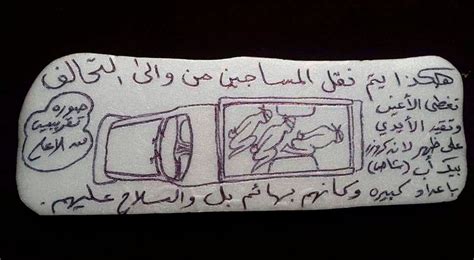 هكذا يتم نقل المساجين من وإلى التحالف
تغطى الأعين
وتقيد الأيدي
على ظهور لاندكروزر
بيك أب (خاص)
بأعداد كبيره وكأنهم بهائم بل والسلاح عليهم.
صوره
تقريبيه
من الأعلى